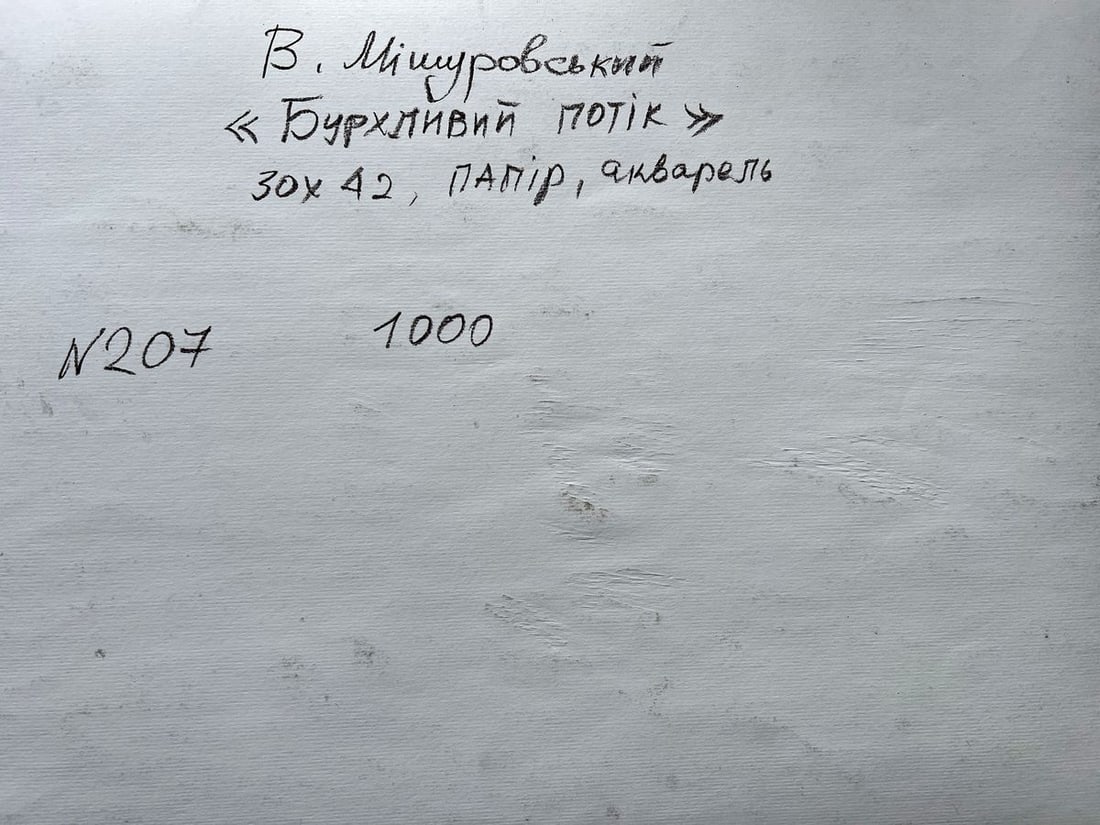 В. Мішуровський
« Бурхливий потік »
30х42, папір, акварель
N207 1000